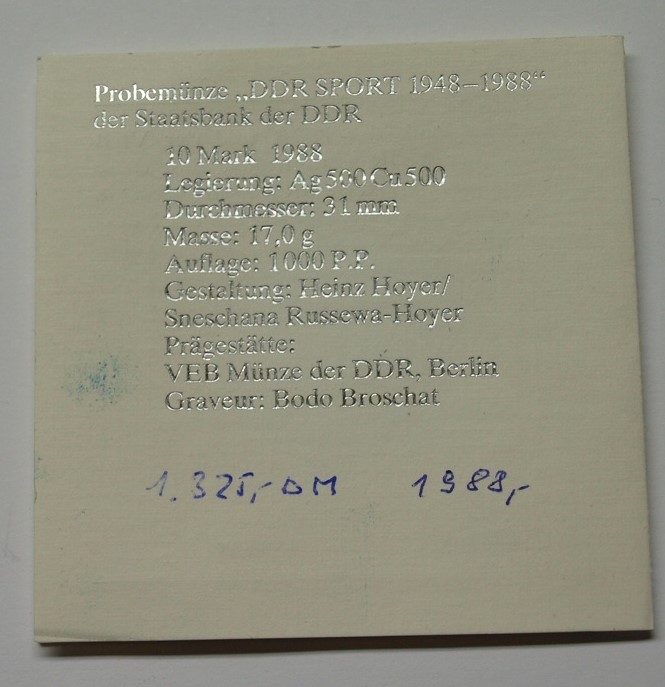 Probemünze „DDR SPORT 1948–1988“
der Staatsbank der DDR
10 Mark 1988
Legierung: Ag 500 Cu 500
Durchmesser: 31 mm
Masse: 17,0 g
Auflage: 1000 P.P.
Gestaltung: Heinz Hoyer/
Sneschana Russewa-Hoyer
Prägestätte:
VEB Münze der DDR, Berlin
Graveur: Bodo Broschat
1.325,- DM 1988,-